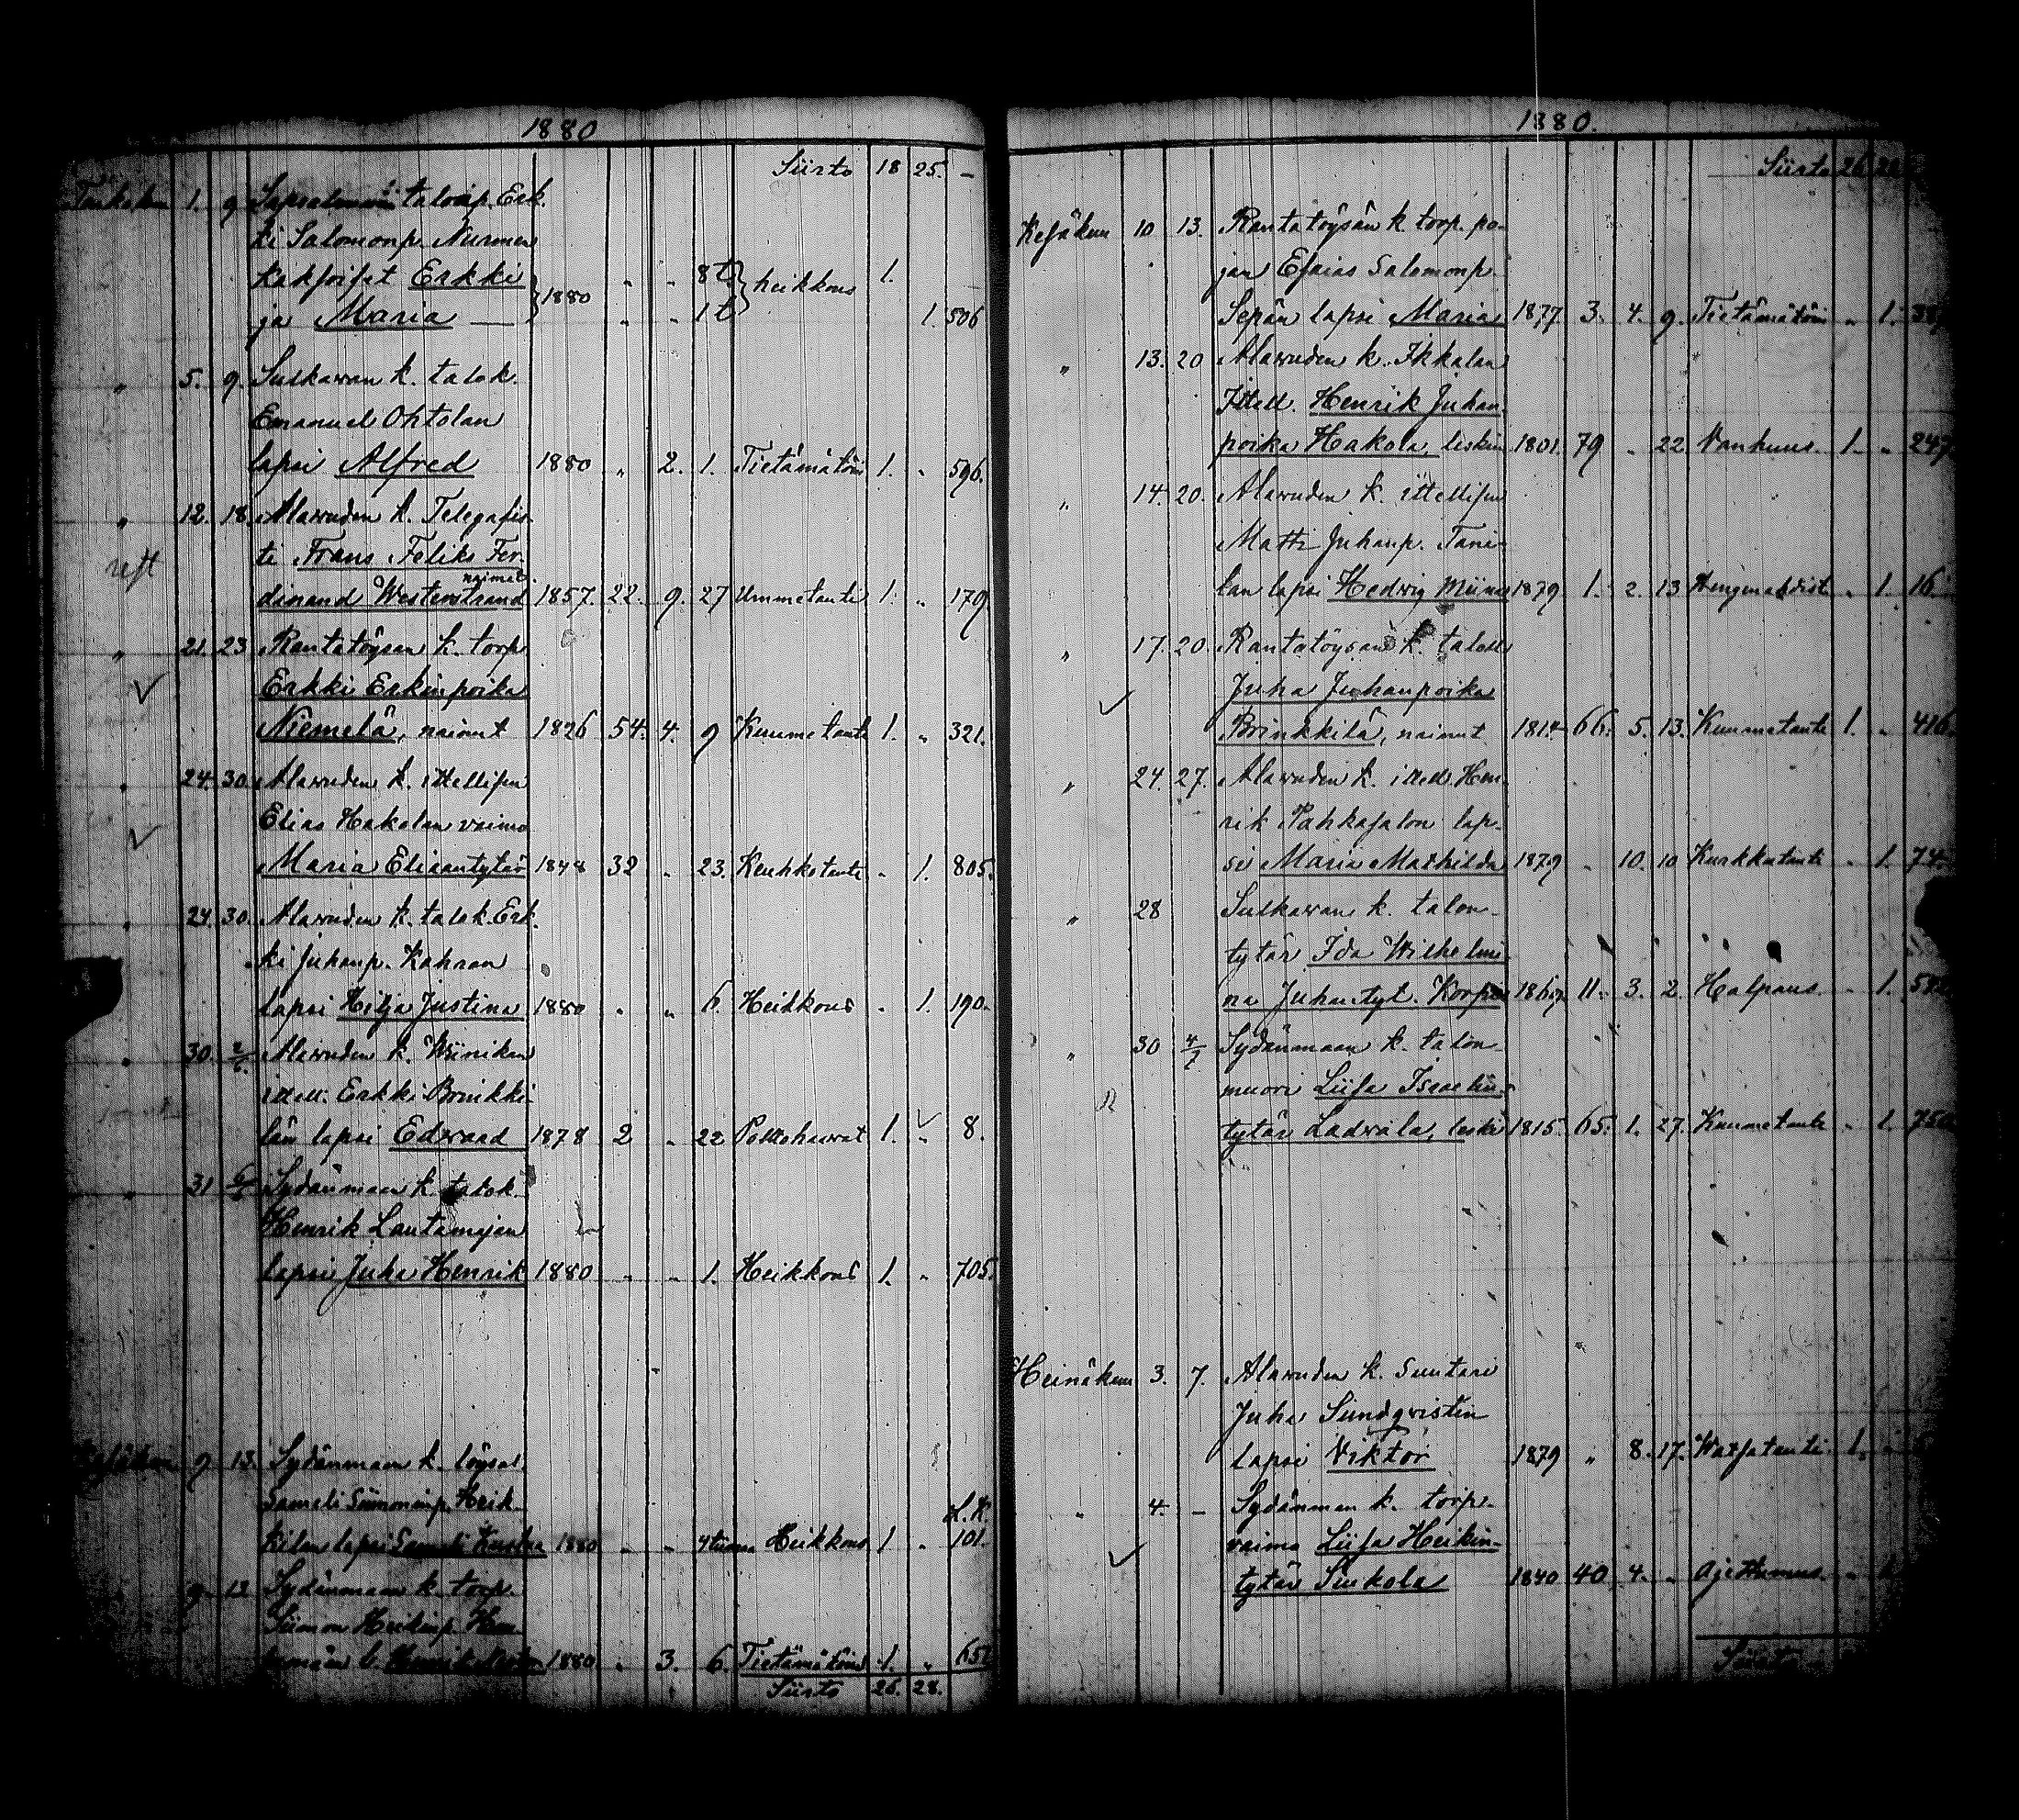 1880
Siirto 18 25. —
Toukokuu 1. 9 talonp. Erk-
ki Salomonp. Nurmen
kaksoiset Erkki 8 t. heikkous 1.
ja Maria — 1880 " " 1 t 1. 506
" 5. 9. Sulkavan k. talok.
Emanuel Ohtolan
lapsi Alfred 1880 " 2. 1. Tietämätöin 1. " 596.
" 12. 18. Alavuden k. Telegrafis-
ti Frans Feliks Fer-
dinand Westerstrand naimat. 1857. 22. 9. 27 Ummetauti 1. " 179
" 21. 23 Rantatöysän k. torp
Erkki Erkinpoika
Niemelä, nainut 1826 54. 4. 9 Kuumetauti 1. " 321.
" 24. 30. Alavuden k. itellisen
Elias Hakolan vaimo
Maria Eliaantytär 1848 32 " 23. Keuhkotauti " 1. 805.
" 24. 30. Alavuden k. talok. Erk-
ki Juhanp. Kahran
lapsi Hilja Justina 1880 " " 6. Heikkous " 1. 190.
" 30. 2/6. Alavuden k.
itell. Erkki Brinkki-
län lapsi Edvard 1878 2 " 22 1. " 8.
" 31 6/6 Sydänmaan k. talok.
Henrik Lautamajan
lapsi Juha Henrik 1880 " " 1. Heikkous 1. " 705.
9 13. Sydänmaan k. löysäl.
Sameli Siimoninp. Heik- L.K.
kilan lapsi Sameli Kustaa 1880 " " 4 tuntia Heikkous 1 " 101.
9 13 Sydänmaan k. torp.
Siimon Heikinp.
1880 " 3. 6. Tietämätöin 1. " 652
Siirto 26. 28.
1880.
Siirto 26 28
Kesäkuu 10 13. Rantatöysän k torp. po-
jan Esaias Salomonp.
Sepän lapsi Maria 1877 3. 4. 9. Tietämätöin " 1.
" 13. 20 Alavuden k. Ikkalan
Itell. Henrik Juhan-
poika Hakola, leskim 1801. 79 " 22 Vanhuus 1. " 247
" 14. 20. Alavuden k. itellisen
Matti Juhanp. Tani-
lan lapsi Hedvig Miina 1879 1. 2. 13 Hengenahdist. " 1. 16.
" 17. 20. Rantatöysän k. talok
Juha Juhanpoika
Brinkkilä, nainut 1814 66. 5. 13. Kuumetauti 1. " 416.
" 24. 27. Alavuden k. itell. Hen-
rik Pahkasalon lap-
si Maria Mathilda 1879 " 10. 10 Kurkkutauti " 1. 74
" 28 Sulkavan k. talon-
tytär Ida Wilhelmi-
na Juhantyt. 1869. 11. 3. 2. Halpaus. " 1.
" 30 4/7 Sydänmaan k. talon-
muori Liisa Israelin-
tytär Ladvala, leski 1815. 65. 1. 27. Kuumetauti " 1. 750
Heinäkuu 3. 7. Alavuden k. Suutari
Juha Sundqvistin
lapsi Viktor 1879 " 8. 17. Watsatauti 1.
" 4. — Sydänmaan k. torp.
vaimo Liisa Heikin-
tytär 1840 40 4. " Ajettumus "
Siirto